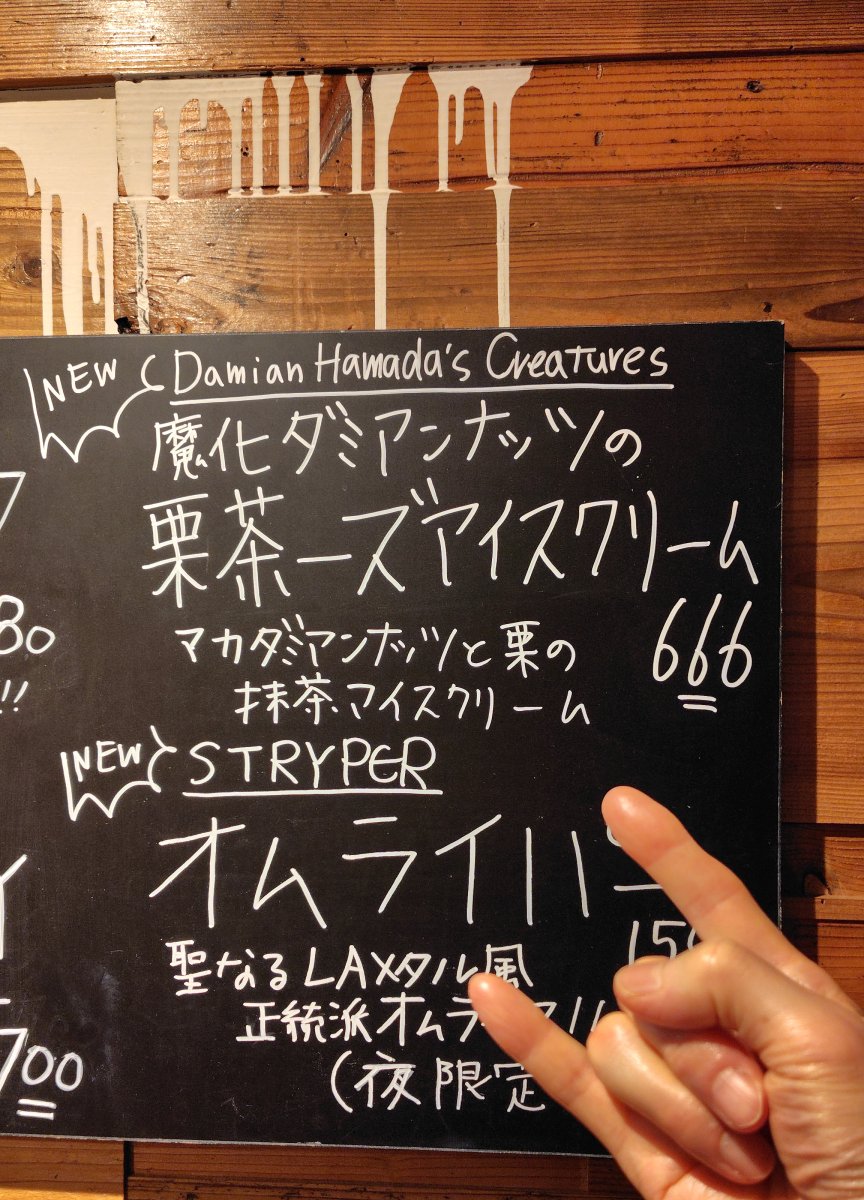 NEW Damian Hamada's Creatures
魔化ダミアンナッツの
栗茶ーズアイスクリーム
80
マカダミアンナッツと栗の
666
!!
抹茶アイスクリーム
NEW STRYPER
オムライパー
聖なるLAメタル風
正統派オムラ
(夜限定
700